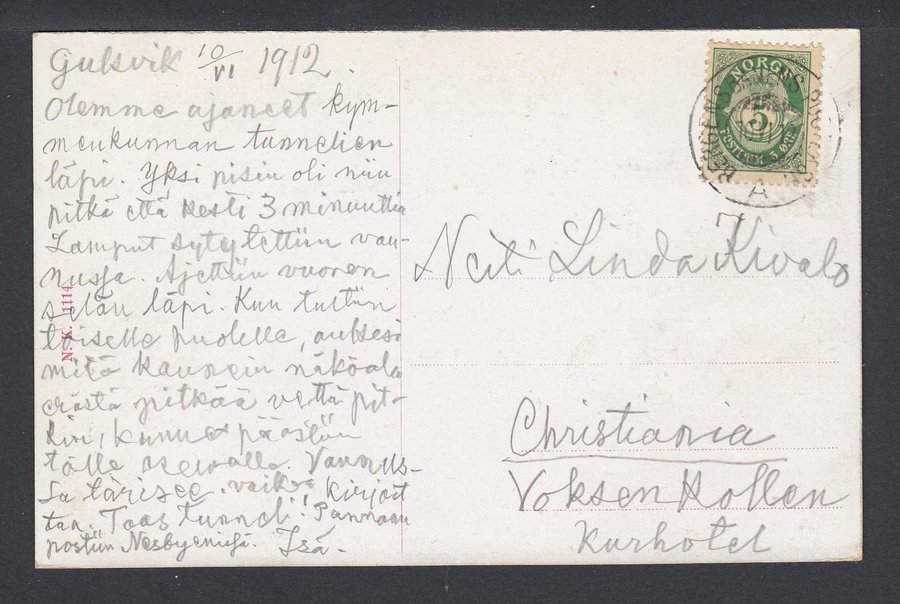 Gulsvik 10/VI 1912.
Olemme ajaneet kym-
menkunnan tunnelien
läpi. Yksi pisin oli niin
pitkä että kesti 3 minuuttia
Lamput sytytettiin vau-
nussa. Ajettiin vuoren
selän läpi. Kun tultiin
toiselle puolelle, aukesi
mitä kaunein näköala
erästä pitkää vettä pit-
kin, kunnes päästiin
tälle asemalle. Vaunus-
sa tärisee. vaikea kirjoit
taa. Taas tunneli! Pannaan
postiin Nesbyenissä. Isä.
N. K. 1114.
NORGE
5
POSTFRIM 5 ØRE
A
Neiti Linda Kivalo
Christiania
Voksen Kollen
Kurhotel